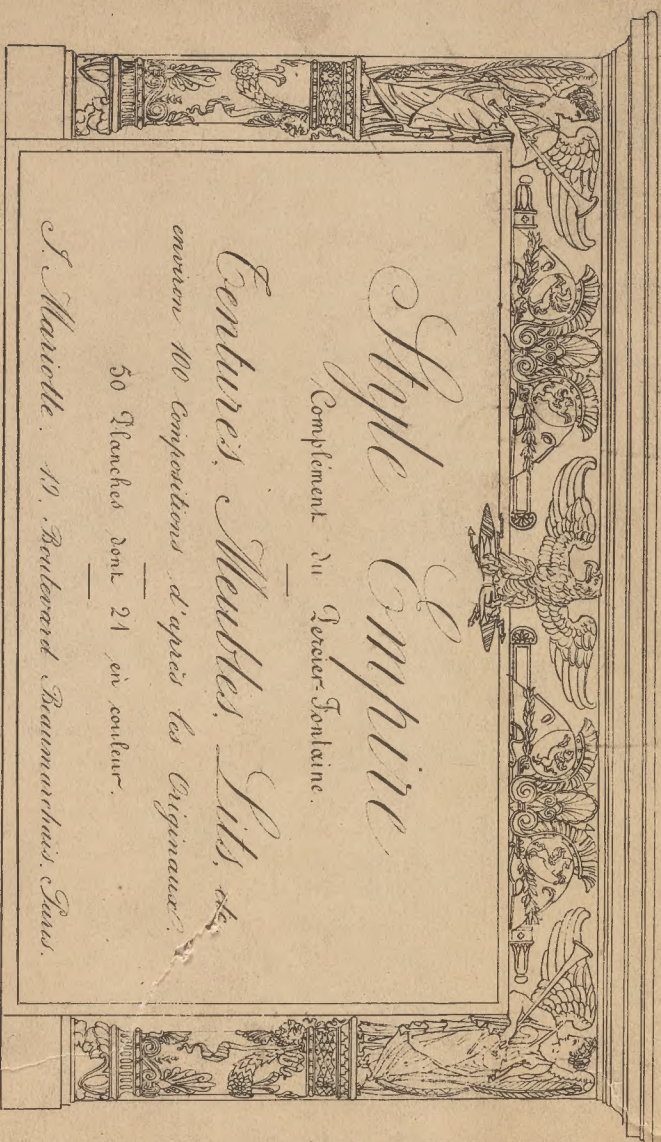 Style Empire
Complément du Percier-Fontaine.
Tentures, Meubles, Lits, de
environ 100 Compositions d'après les Originaux.
50 Planches dont 21 en couleur.
J. Mariotte. 19, Boulevard Beaumarchais. Paris.